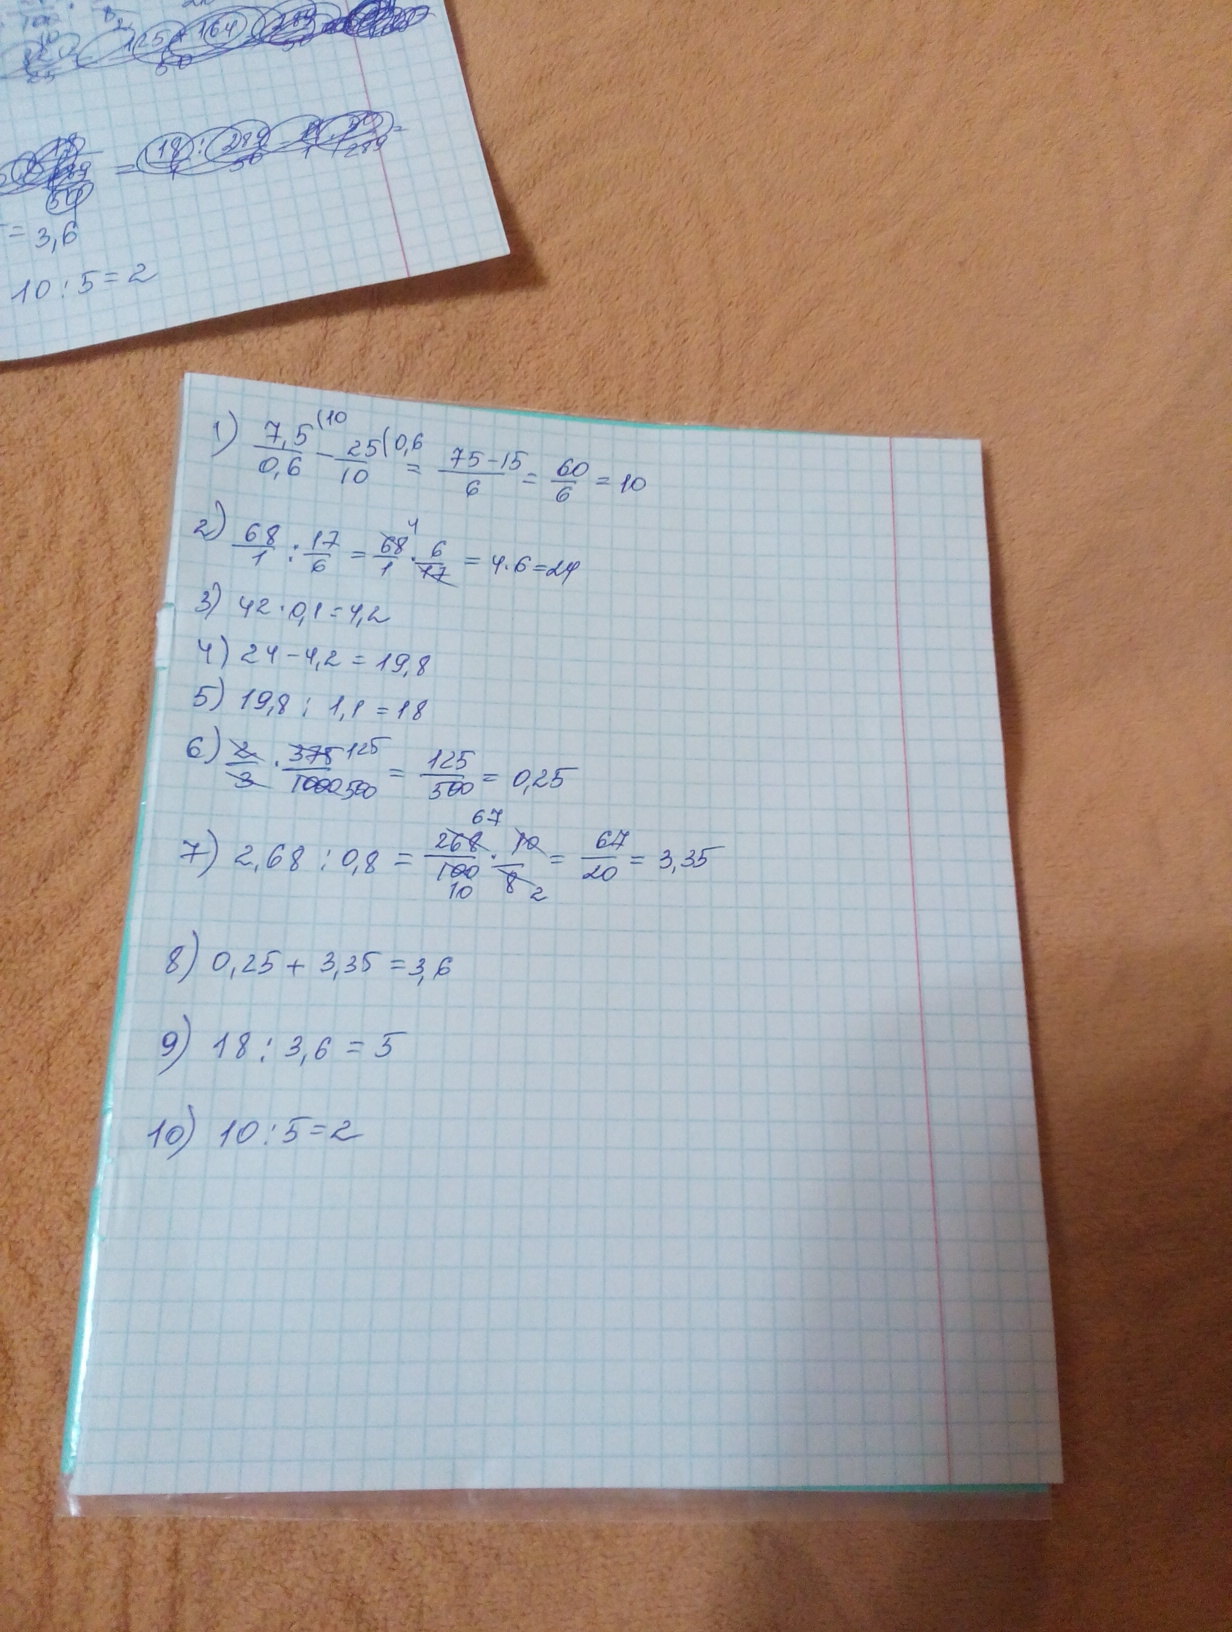 = 3,6
10 : 5 = 2
1) 7,5(10/0,6 - 25(0,6/10 = 75-15/6 = 60/6 = 10
2) 68/1 : 17/6 = 68 4/1 · 6/17 = 4·6=24
3) 42·0,1=4,2
4) 24-4,2=19,8
5) 19,8 : 1,1 = 18
6) 2/3 · 375 125/1000 500 = 125/500 = 0,25
7) 2,68 : 0,8 = 268 67/100 10 · 10/8 2 = 67/20 = 3,35
8) 0,25 + 3,35 = 3,6
9) 18 : 3,6 = 5
10) 10 : 5 = 2